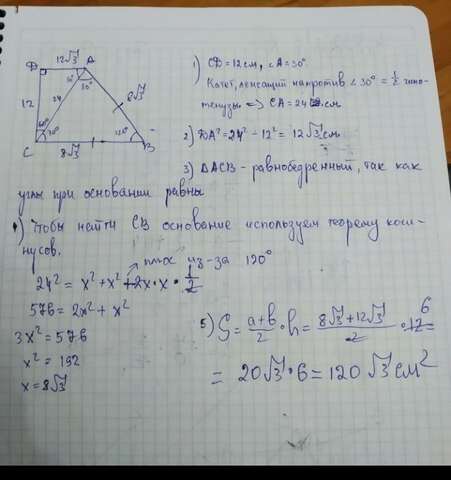 D 12√3 A
30°
30°
12
24
8√3
60°
30°
120°
C
8√3
B
1) CD = 12 см, ∠A = 30°
Катет, лежащий напротив ∠30° = 1/2 гипо-
тенузы => CA = 24 см
2) DA² = 24² - 12² = 12√3 см
3) ΔACB - равнобедренный, так как
углы при основании равны
4) Чтобы найти CB основание используем теорему коси-
нусов.
плюс из-за 120°
24² = x² + x² + 2x · x · 1/2
576 = 2x² + x²
3x² = 576
x² = 192
x = 8√3
5) S = a+b/2 · h = 8√3 + 12√3/2 · 12 6
= 20√3 · 6 = 120√3 см²